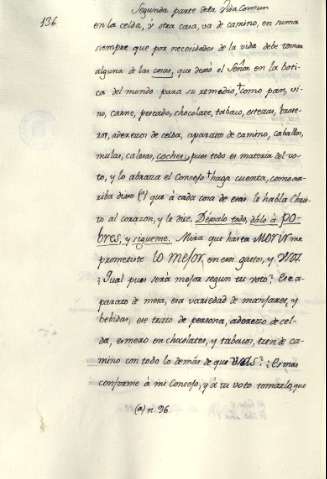 136
Segunda parte dela Vida Comun
en la celda, ÿ otra casa, va de camino, en suma
siempre que por necesidad de la vida debe tomar
alguna de las cosas, que dexó el Señor en la boti-
ca del mundo para su remedio, como pan, vi-
no, carne, pescado, chocolate, tabaco, esteras,
aderezos de celda, aparatos de camino, caballos,
mulas, calesas, coches, pues todo es materia del vo-
to, y lo abraza el Consejo haga cuenta, como
riba dixe (a) que à cada cosa de esas le habla Chris-
to al corazon, y le dice. Dexalo todo, dalo à po-
bres, y sigueme. Mira que hasta MORIR me
prometiste lo mejor, en esse gasto, y
¿Qual pues seria mejor segun tu voto? Ese a-
parato de mesa, esa variedad de manjares, y
bebidas, ese trato de persona, aderezo de cel-
da, esmero en chocolates, y tabacos, tren de ca-
mino con todo lo demás de que ¿Es mas
conforme à mi Consejo, y à tu voto tomarlo, que
(a) n. 96.